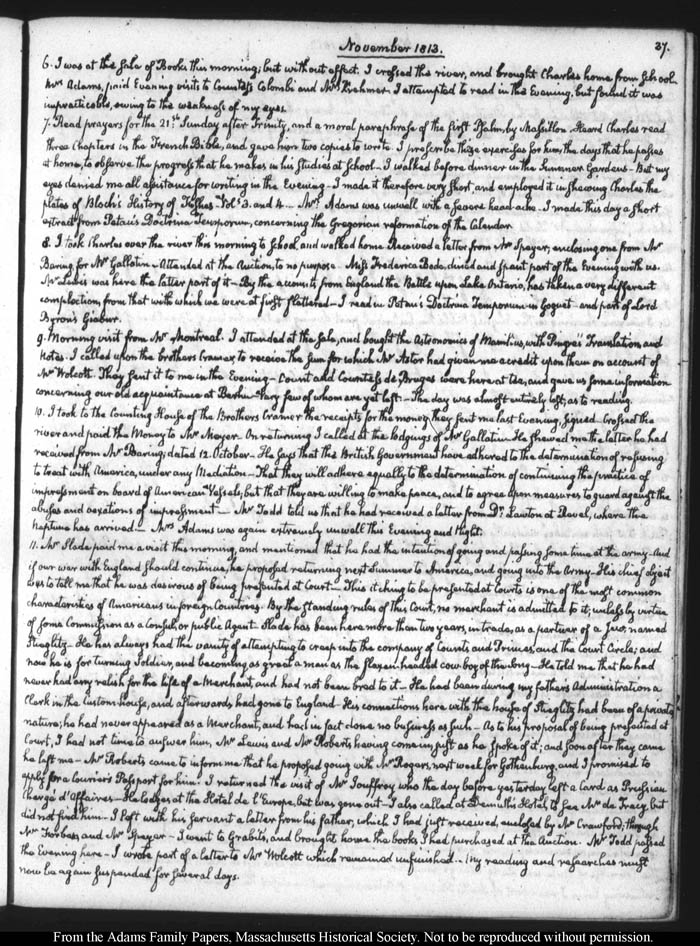 November 1813.
37.
6. I was at the Sale of Books this morning; but without effect. I crossed the river, and brought Charles home from School.
Mrs Adams, paid Evening visits to Countess Colombi and Mrs Krehmer. I attempted to read in the Evening, but found it was
impracticable, owing to the weakness of my eyes.
7. Read prayers for the 21.st Sunday after Trinity, and a moral paraphrase of the first Psalm, by Massillon. Heard Charles read
three Chapters in the French Bible, and gave him two copies to write. I prescribe these exercises for him, the days that he passes
at home, to observe the progress that he makes in his Studies at School. I walked before dinner in the Summer Gardens. But my
eyes denied me all assistance for writing in the Evening. I made it therefore very short, and employed it in shewing Charles the
plates of Bloch's History of Fishes Vols 3. and 4. Mrs Adams was unwell with a severe head-ache. I made this day a short
extract from Petau's Doctrina Temporum, concerning the Gregorian reformation of the Calendar.
8. I took Charles over the river this morning to School, and walked home. Received a letter from Mr Speyer, enclosing one from Mr
Baring, for Mr Gallatin. Attended at the Auction, to no purpose. Miss Frederica Bode, dined and spent part of the Evening with us.
Mr Lewis was here the latter part of it. By the accounts from England the Battle upon Lake Ontario, has taken a very different
complection, from that with which we were at first flattered. I read in Petau's Doctrina Temporum in Goguet and part of Lord
Byron's Giaour.
9. Morning visit from Mr Montreal. I attended at the Sale, and bought the Astronomics of Manilius, with Pingré's Translation and
Notes. I called upon the brothers Cramer, to receive the sum for which Mr Astor had given me a credit upon them on account of
Mr Wolcott. They sent it to me in the Evening. Count and Countess de Bruges were here at Tea, and gave us some information
concerning our old acquaintance at Berlin. Very few of whom are yet left. The day was almost entirely lost, as to reading.
10. I took to the Counting House of the Brothers Cramer the receipts for the money they sent me last Evening, signed. Crossed the
river and paid the Money to Mr Meyer. On returning I called at the lodgings of Mr Gallatin. He shewed me the letter he had
received from Mr Baring; dated 12. October. He says that the British Government have adhered to the determination of refusing
to treat with America, under any Mediation. That they will adhere equally to the determination of continuing the practice of
impressment on board of American Vessels, but that they are willing to make peace, and to agree upon measures to guard against the
abuses and vexations of impressment. Mr Todd told us that he had received a letter from Dr Lawton at Revel, where the
Neptune has arrived. Mrs Adams was again extremely unwell this Evening and Night.
11. Mr Slade paid me a visit this morning, and mentioned that he had the intention of going and passing some time at the army. And
if our war with England should continue, he proposed returning next Summer to America, and going into the Army. His chief object
was to tell me that he was desirous of being presented at Court. This itching to be presented at Courts is one of the most common
characteristics of Americans in foreign Countries. By the standing rules of this Court, no merchant is admitted to it; unless by virtue
of some Commission as a Consul, or public Agent. Slade has been here more than two years, in trade, as a partner of a Jew, named
Stieglitz. He has always had the vanity of attempting to creep into the company of Counts and Princes, and the Court Circle; and
now he is for turning Soldier, and becoming as great a man as the flaxen-headed cow-boy of the song. He told me that he had
never had any relish for the life of a Merchant, and had not been bred to it. He had been during my father's Administration a
Clerk in the Custom-house, and afterwards had gone to England. His connections here with the house of Stieglitz had been of a private
nature; he had never appeared as a Merchant, and had in fact done no business as such. As to his proposal of being presented at
Court, I had not time to answer him, Mr Lewis and Mr Roberts having come in, just as he spoke of it; and soon after they came
he left me. Mr Roberts came to inform me that he proposed going with Mr Rogers, next week for Gothenburg, and I promised to
apply for a Courier's Passport for him. I returned the visit of Mr Jouffroy who the day before yesterday left a Card as Prussian
Chargé d'Affaires. He lodges at the Hotel de l'Europe, but was gone out. I also called at Demuth's Hotel, to see Mr de Tracy, but
did not find him. I left with his servant a letter from his father, which I had just received, enclosed by Mr Crawford; through
Mr Forbes, and Mr Speyer. I went to Grabit's, and brought home the books I had purchased at the Auction. Mr Todd passed
the Evening here. I wrote part of a letter to Mr Wolcott which remained unfinished. My reading and researches must
now be again suspended for several days.
From the Adams Family Papers, Massachusetts Historical Society. Not to be reproduced without permission.